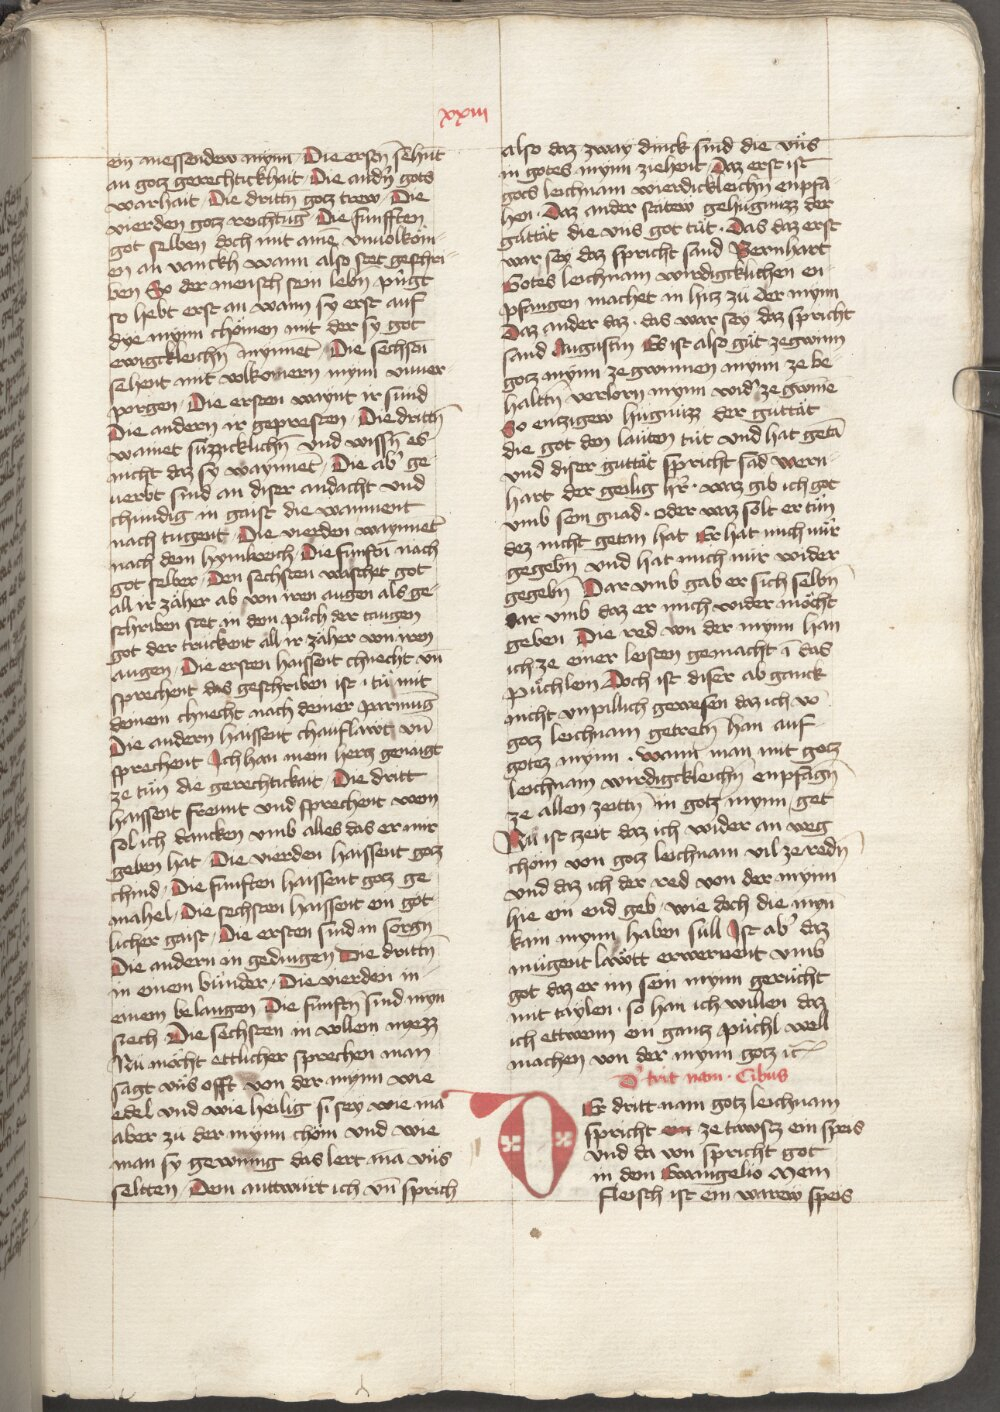 xxiii
ein messendew mynn Die ersten sehnt
an gotz gerechtickhait / Die andn̄ gots
warhait / Die drittn̄ gotz trew / Die
vierden gotz reichtuḡ / Die funfften
got selben doch mit ainē vnuolkōm
en an vanckh wann also stet geschri-
ben So der mensch sein lebn̄ pringt
so hebt erst an wann sy erst auf
dye mynn chömen mit der sy got
ewigckleichn̄ mynnet / Die sechsn̄
sehent mit volkomern mynn vnuer-
porgen / Die ersten waynt ir sund
Die andern ir gepresten / Die drittn̄
wainet süzzicklichn̄ vnd wissn̄ es
nicht daz sy waynnet / Die ab᾽ ge
uerbt sind an diser andacht vnd
chundig in gaist die wainent
nach tugent / Die vierden waynnet
nach dem hymlreich / Die funftn̄ nach
got selber / Den sechsten waschet got
all ir zäher ab von iren augen als ge-
schriben stet in dem půch der taugen
got der truckent all ir zäher von iren
augen / Die ersten haissent chnecht vn̄
sprechent das geschriben ist · tů mit
deinem chnecht nach deiner parmuḡ
Die andern haissent chauflawt vn̄
sprechent Ich han mein hertz genaigt
ze tůn die gerechtickait / Die dritt
haissent freunt vnd sprechent wem
sol ich dancken vmb alles das er mir
geben hat / Die vierden haissent gotz
chind / Die funften haissent gotz ge
mahel / Die sechsten haissent ein göt
licher gaist / Die ersten sind in sorgn̄
Die andern in gedingen Die drittn̄
in einem bünder / Die vierden in
einem belangen Die funftn̄ sind myn
siech / Die sechsten in vollem mezz
Nu möcht ettlicher sprechen man
sagt vns offt von der mynn wie
edel vnd wie heilig si sey wie mā
aber zu der mynn chöm vnd wie
man sy gewinng das lert mā vns
seltten / Dem antwurt ich vn̄ sprich
also daz zway dinck sind die vns
in gotes mynn ziehent / Daz erst ist
gots leichnam wierdickleichn̄ enpfa
hen · Daz ander stätew gehugnuzz der
guttät die vns got tůt · Das daz erst
war sey daz spricht sand Bernhart
Gotes leichnam wirdigcklichen en-
pfangen machet in hitz zü der mynn
Daz ander daz · das war sey daz spricht
sand Augustin Es ist also gůt ze gwinn
gotz mynn ze gwinnen mynn ze be
haltn̄ verlorn mynn wid᾽ ze gwinē
So entzigew hugnuzz der guttät
die got den läuten tůt vnd hat getā
vnd diser guttät spricht sād wern-
hart der heilig h᾽r · waz gib ich got
vmb sein gnad · oder waz solt er tůn
dez nicht getan hat Er hat mich mir
gegebn̄ vnd hat mich mir wider
gegebn̄ Dar vmb gab er sich selbn̄
dar vmb daz er mich wider möcht
geben Die red von der mynn han
ich ze einer leisten gemacht ī das
půchlein Doch ist diser ab ganck
nicht vnpillich gewesen daz ich vō
gotz leichnam getretn̄ han auf
gotez mynn · wann man mit gotz
leichnam wirdigckleichn̄ enpfāgn̄
ze allen zeittn̄ in gotz mynn get
Nu ist zeit daz ich wider an weg
chöm von gotz leichnam vil ze redn̄
vnd daz ich der red von der mynn
hie ein end geb · wie doch die myn
kain mynn haben sull Ist ab᾽ daz
mügent lawtt erwernent vmb
got daz er im sein mynn geruͤcht
mit taylen · so han ich willen daz
ich ettwenn ein gantz půchl well
machen von der mynn gotz ic̄
D᾽ trit nam · Cibus
Der dritt nam gotz leichnam
spricht ein ze tawtsz ein speis
vnd da von spricht got
in dem Ewangelio Mein
fleisch ist ein warew speis